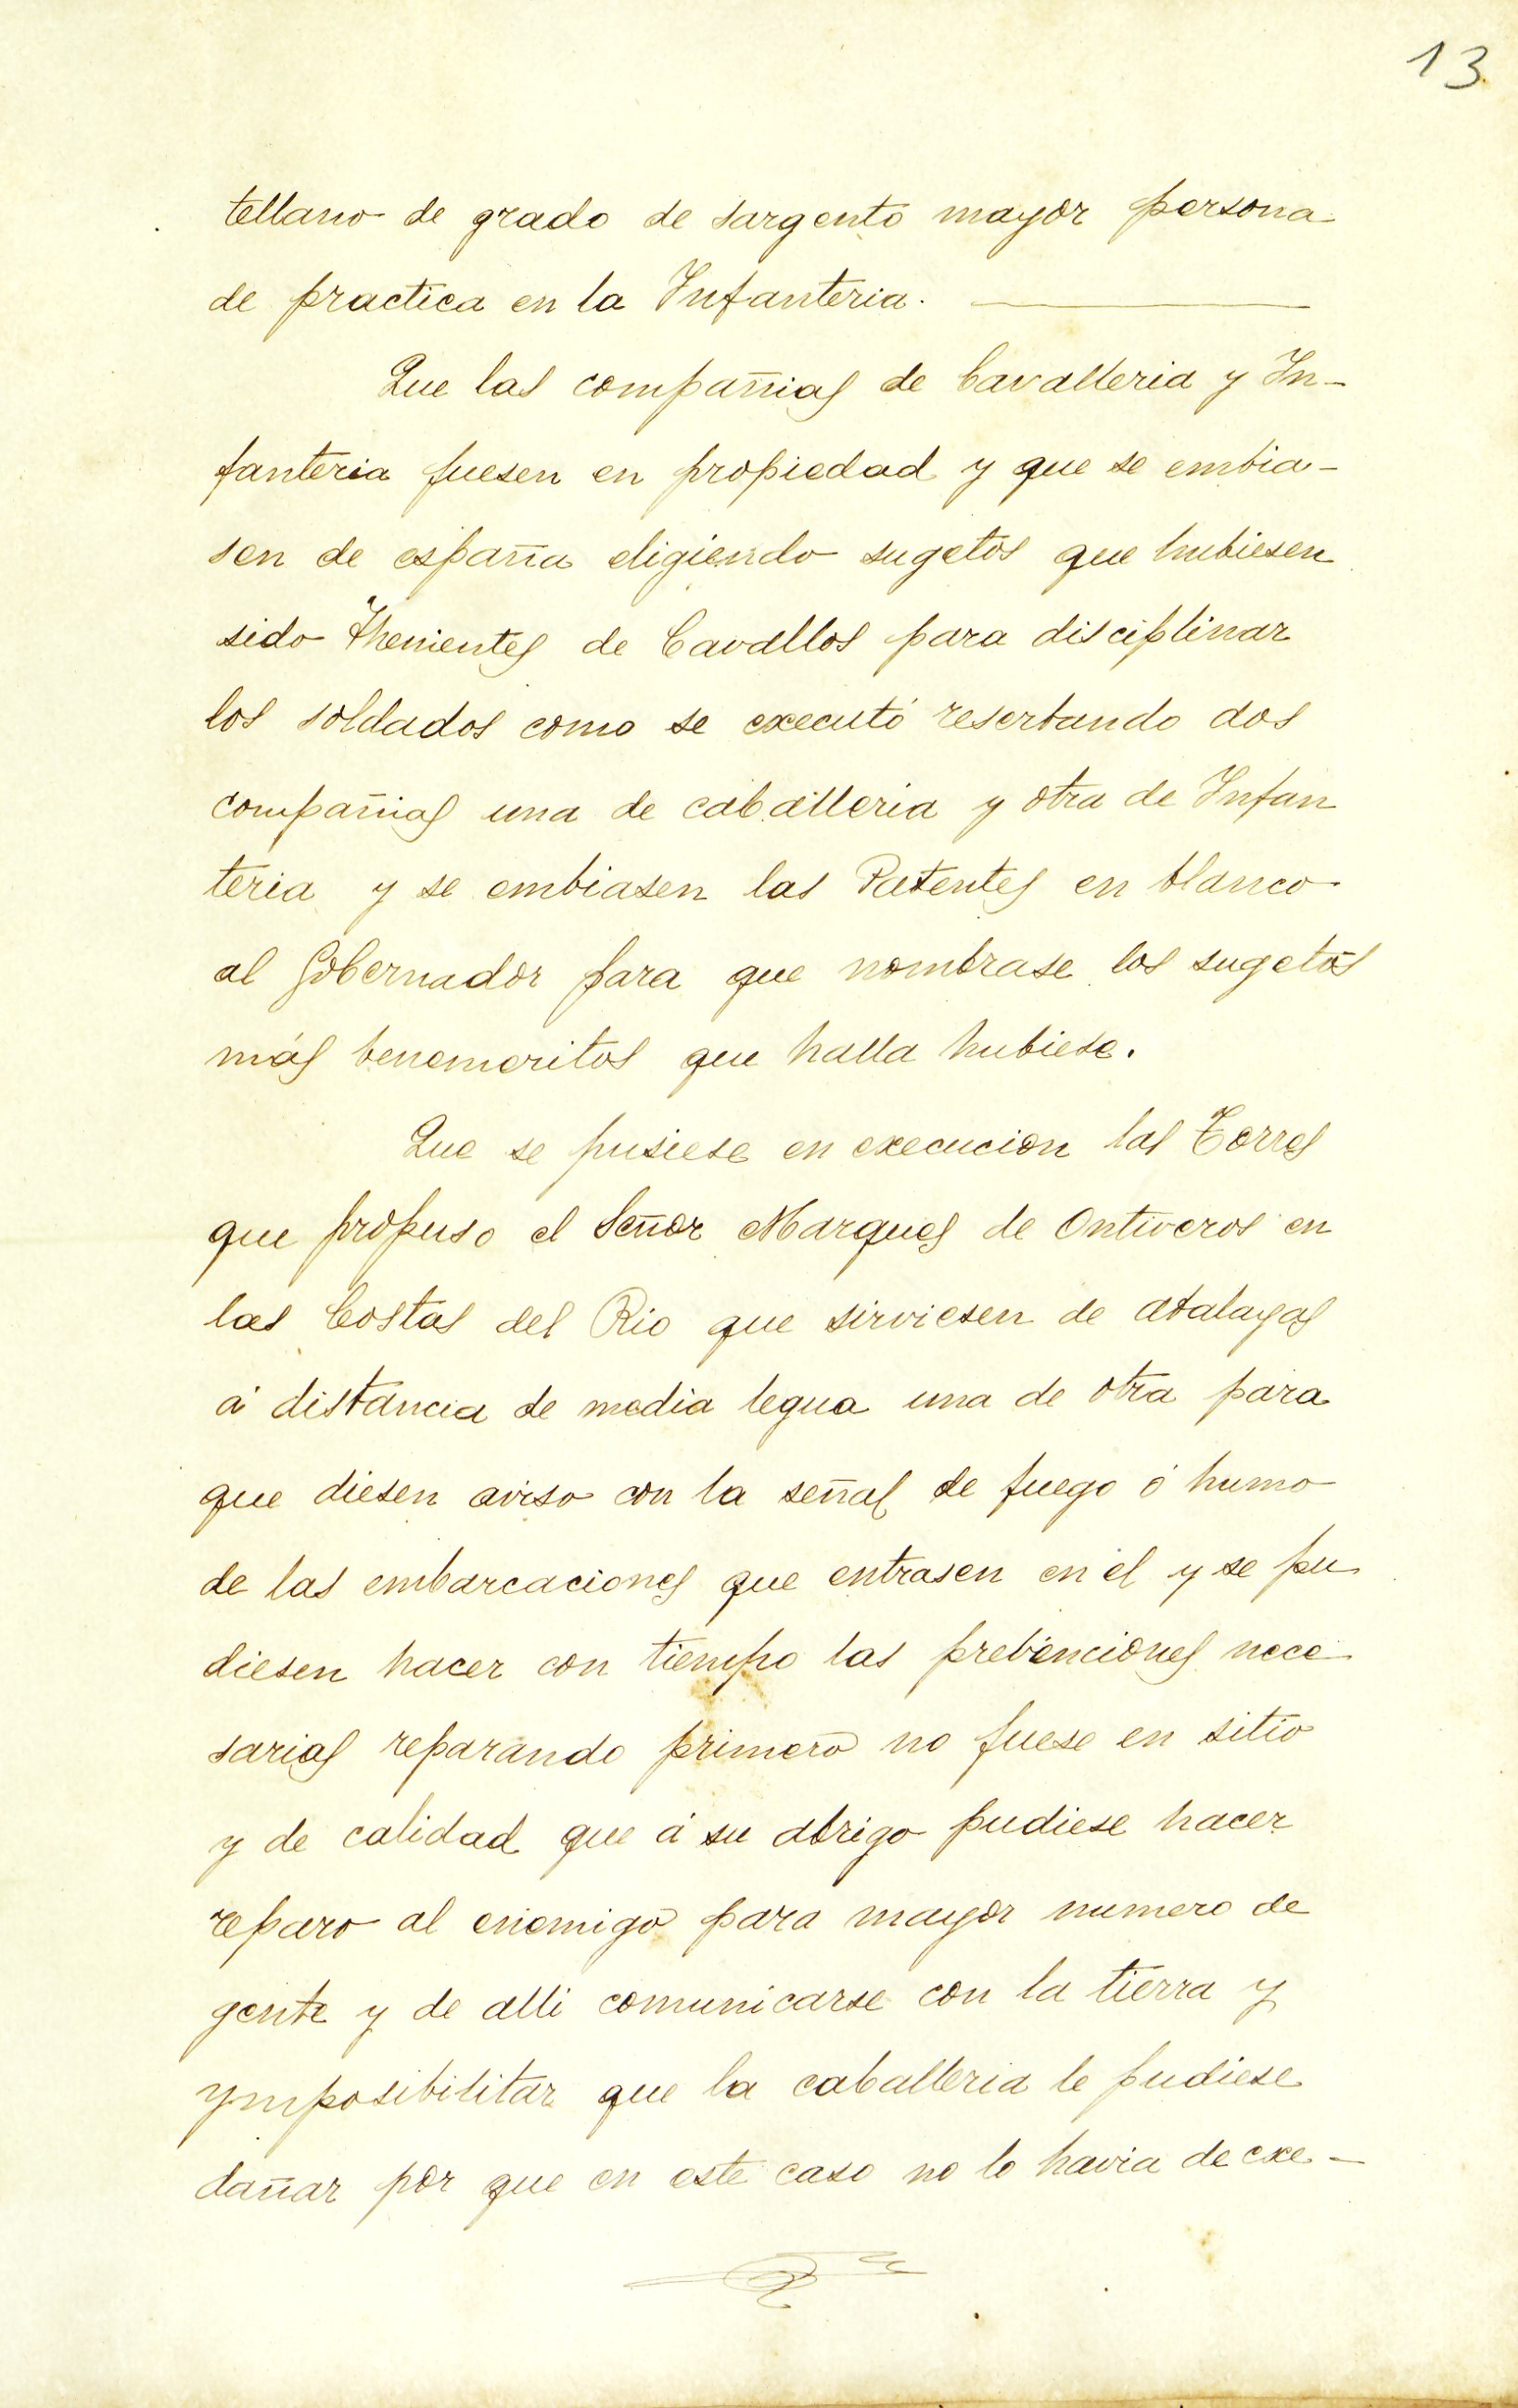 13
tellano de grado de sargento mayor persona
de practica en la Infanteria.
Que las compañias de Cavalleria y In-
fanteria fuesen en propiedad y que se embia-
sen de españa eligiendo sugetos que hubiesen
sido Thenientes de Cavallos para disciplinar
los soldados como se executó reserbando dos
compañias una de caballeria y otra de Infan
teria y se embiasen las Patentes en blanco
al Gobernador para que nombrase los sugetos
más benemeritos que halla hubiese.
Que se pusiese en execucion las Torres
que propuso el Señor Marques de Ontiveros en
las Costas del Rio que sirviesen de atalayas
á distancia de media legua una de otra para
que diesen aviso con la señal de fuego ó humo
de las embarcaciones que entrasen en él y se pu
diesen hacer con tiempo las prebenciones nece
sarias reparando primero no fuese en sitio
y de calidad que á su abrigo pudiese hacer
reparo al enemigo para mayor numero de
gente y de alli comunicarse con la tierra y
ymposibilitar que la caballeria le pudiese
dañar por que en este caso no lo havia de exe-